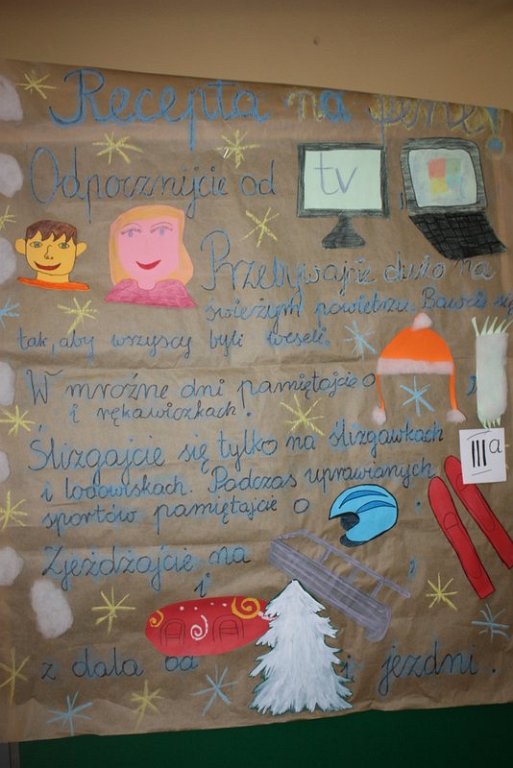 Recepta na ferie!
Odpocznijcie od tv,
Przebywajcie dużo na
świeżym powietrzu. Bawcie się
tak, aby wszyscy byli weseli.
W mroźne dni pamiętajcie o ,
i rękawiczkach.
Ślizgajcie się tylko na ślizgawkach
IIIa
i lodowiskach. Podczas uprawianych
sportów pamiętajcie o .
Zjeżdżajcie na ,
i
z dala od i jezdni.